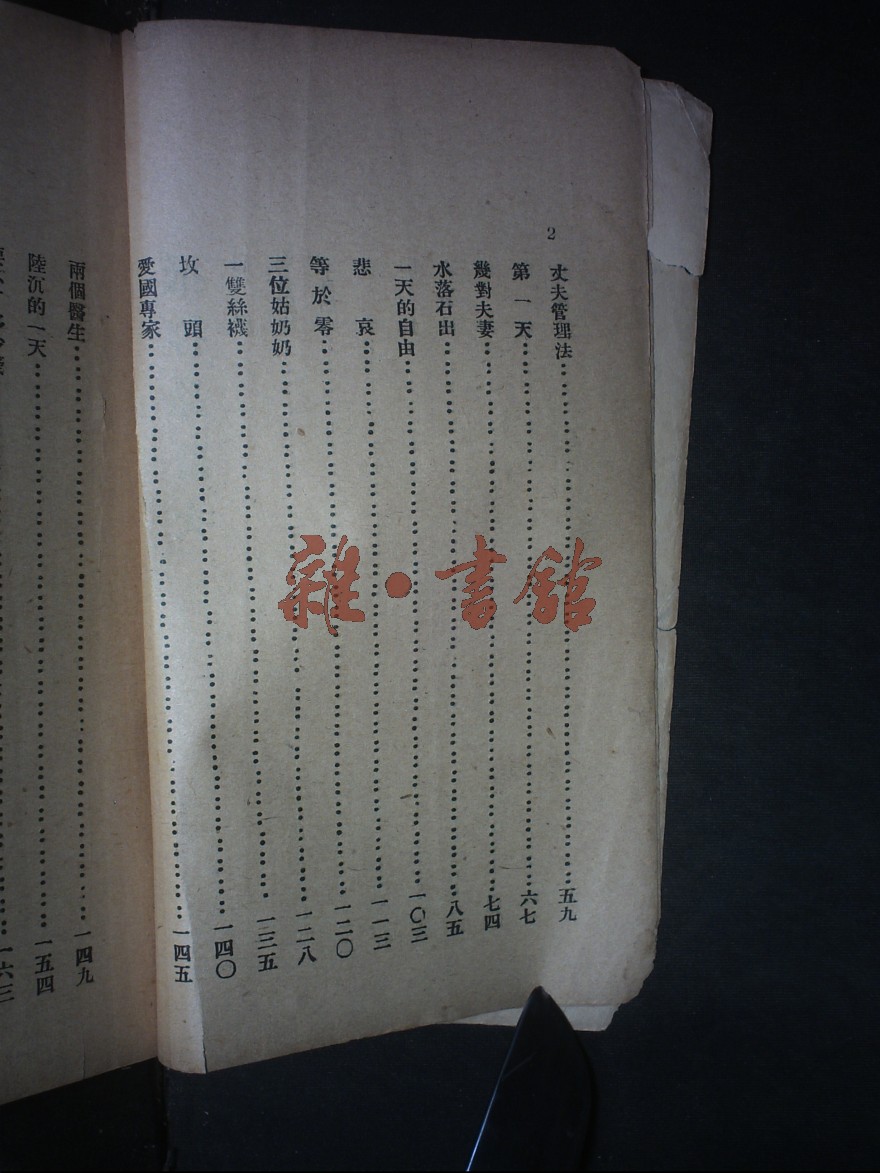 2
丈夫管理法……五九
第一天……六七
幾對夫妻……七四
水落石出……八五
一天的自由……一〇三
悲哀……一一三
等於零……一二〇
三位姑奶奶……一二八
一雙絲襪……一三五
坟頭……一四〇
愛國專家……一四五
兩個醫生……一四九
陸沉的一天……一五四
一六三
雜·書館